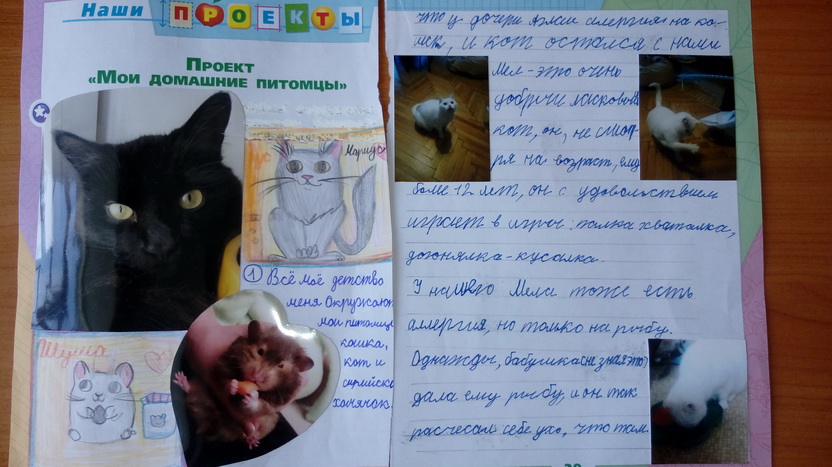 Наши ПРОЕКТЫ
Проект
«Мои домашние питомцы»
Маркиз
Шуша
1 Всё моё детство
меня Окружают
мои питомцы
кошка,
кот и
сирийский
хомячок.
что у дочери Агаты алергия на ко-
шек, и кот остался с нами
Мел-это очень
добрый ласковый
кот, он, не смот-
ря на возраст, ему
боле 12 лет, он с удовольствием
играет в игры: палка хваталка,
догонялка-кусалка.
У нашего Мела тоже есть
алергия, но только на рыбу.
Однажды, бабушка (не зная это)
дала ему рыбу, и он так
расчесал себе ухо, что там